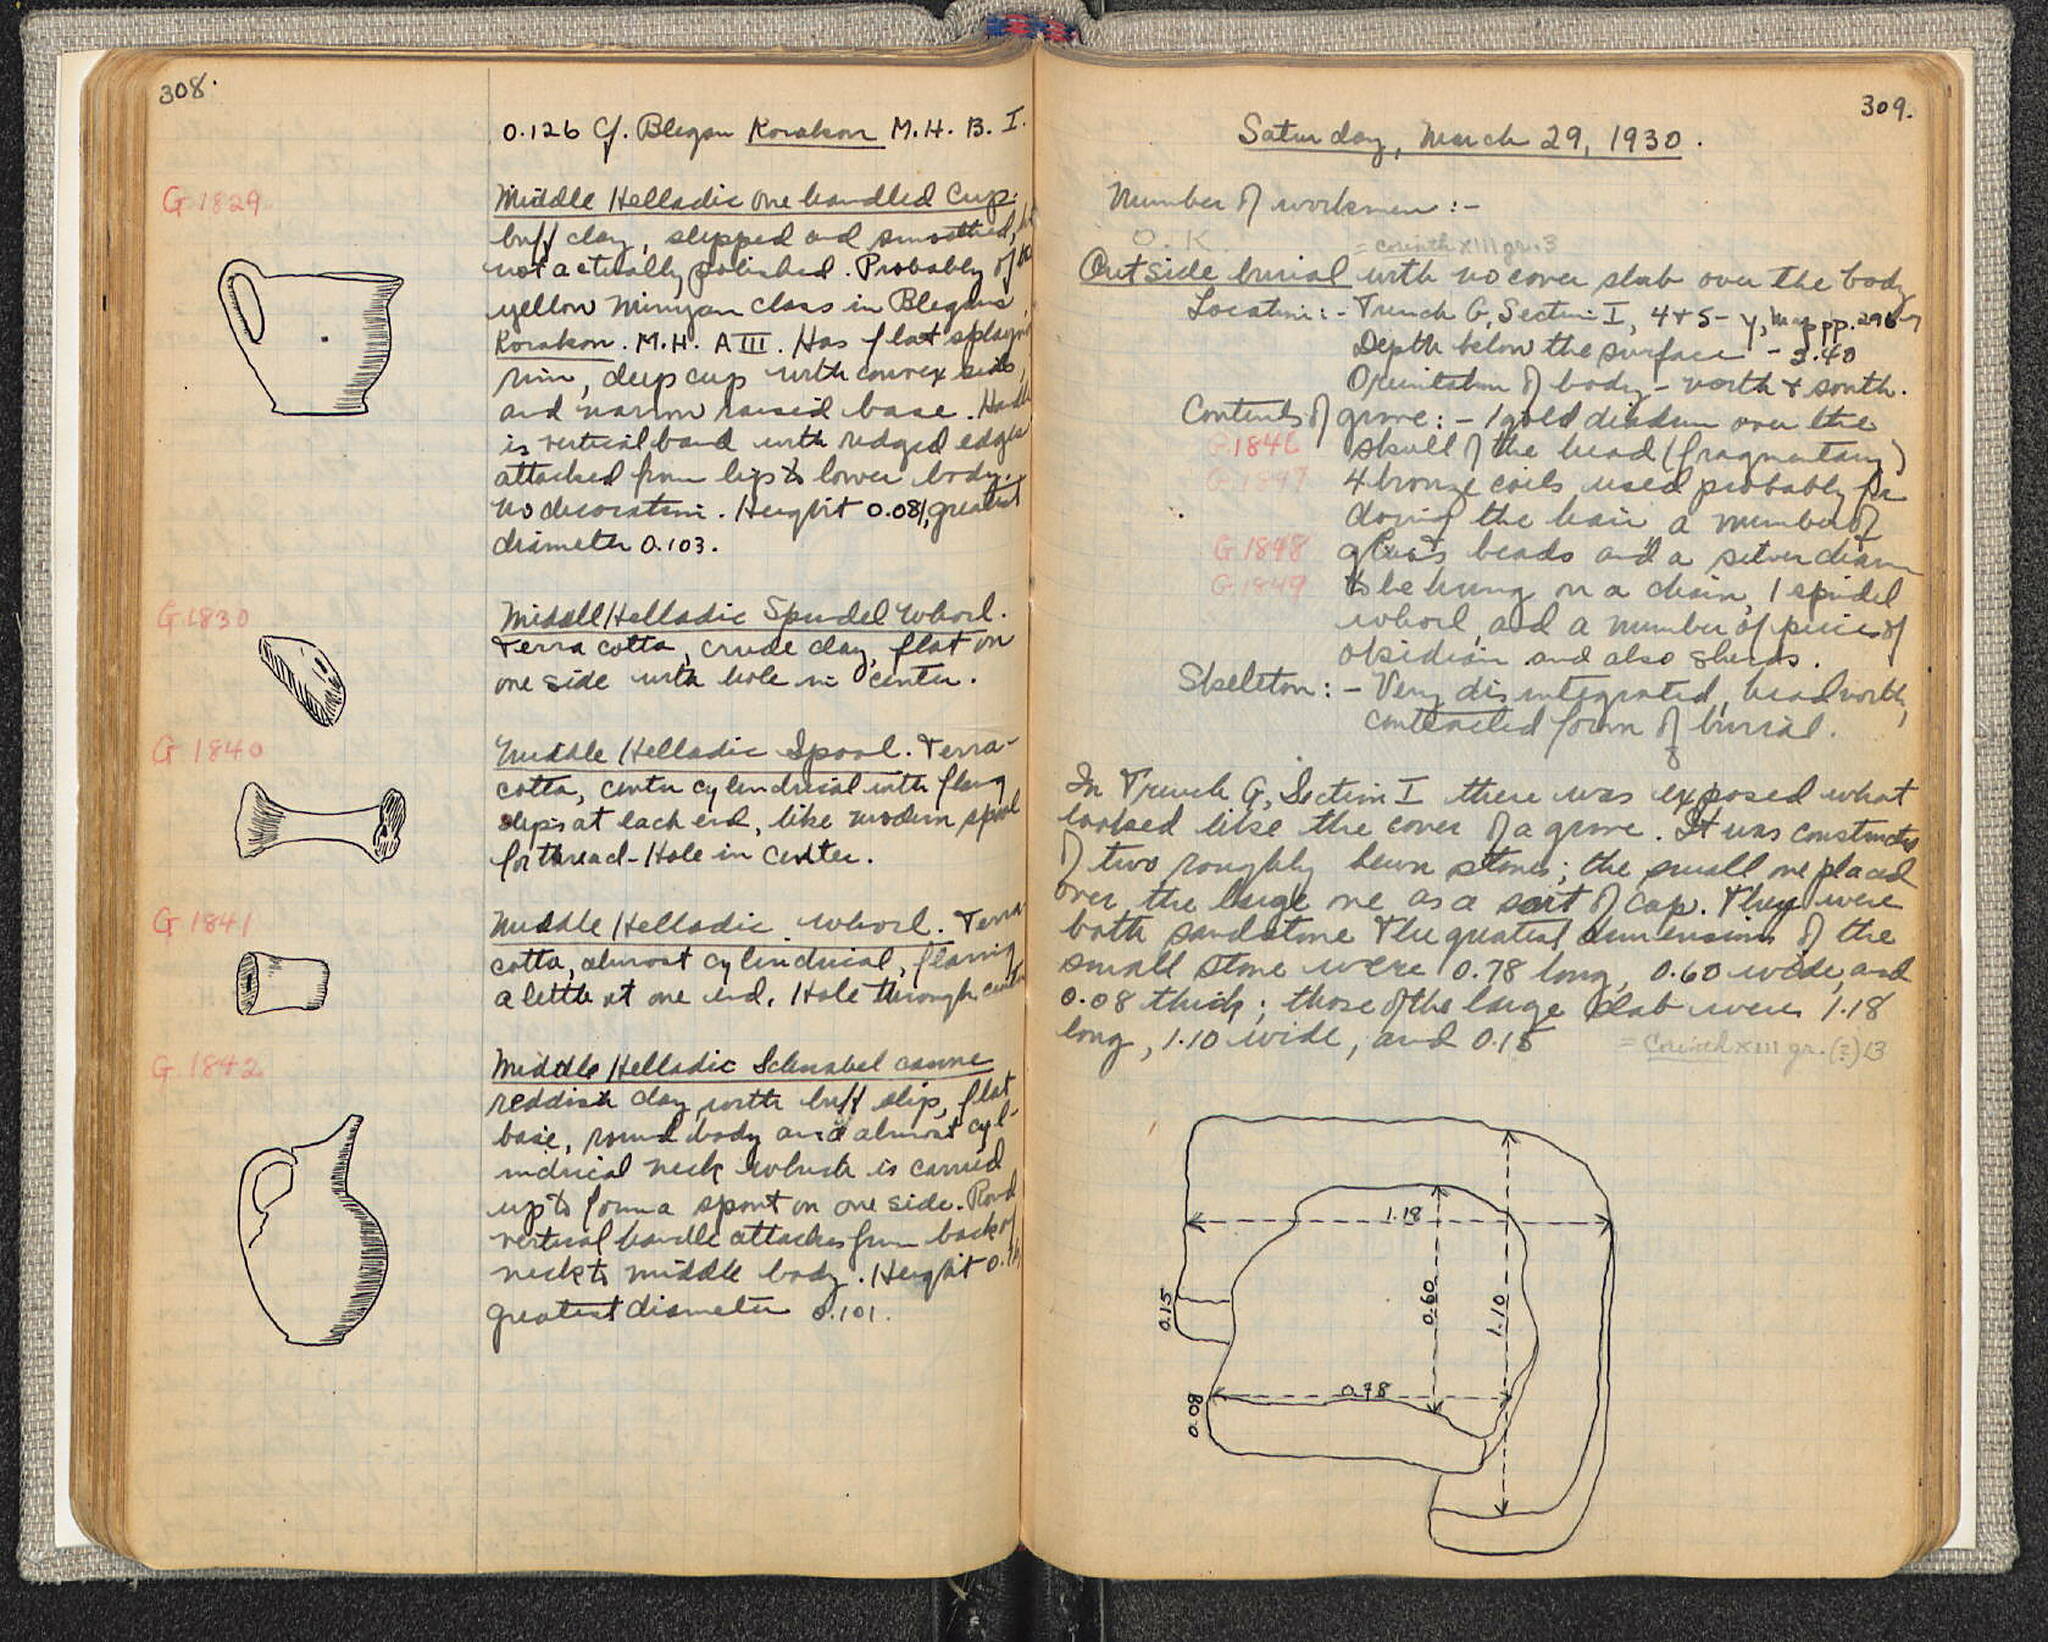 308.
0.126 Cf. Blegen Korakou M.H. B. I.
G 1829
Middle Helladic one handled Cup.
buff clay, slipped and smoothed,
not actually polished. Probably of
yellow Minyan class in Blegens
Korakou. M.H. A III. Has flat splaying
rim, deep cup with convex sides,
and narrow raised base. Handle
is vertical band with ridged edges
attached from lip to lower body.
no decoration. Height 0.081, greatest
diameter 0.103.
G 1830
Middle Helladic Spindel Whorl.
Terra cotta, crude clay, flat on
one side with hole in center.
G 1840
Middle Helladic Spool. Terra-
cotta, center cylindrical with flaring
lips at each end, like modern spool
for thread - Hole in center.
G 1841
Middle Helladic whorl. Terra
cotta, almost cylindrical, flaring
a little at one end. Hole through center
G 1842
Middle Helladic Schnabel canne
reddish clay with buff slip, flat
base, round body and almost cyl-
indrical neck which is carried
up to form a spout on one side. Round
vertical handle attaches from back of
neck to middle body. Height
greatest diameter 0.101.
309.
Saturday, March 29, 1930.
Number of workmen :-
O.K = Corinth XIII gr. 3
Outside burial with no cover slab over the body
Location :- Trench G, Section I, 4+5 - y, Map pp. 296-7
Depth below the surface - 3.40
Orientation of body - north & south.
Contents of grave :- 1 gold diadem over the
G 1846 skull of the head (fragmentary)
G 1847 4 bronze coils used probably for
doing the hair a number of
G 1848 glass beads and a silver
G 1849 to be hung on a chain, 1 spindel
whorl, and a number of pieces of
obsidian and also sherds.
Skeleton :- Very disintegrated, head north,
contracted form of burial.
In Trench G, Section I there was exposed what
looked like the cover of a grave. It was constructed
of two roughly hewn stones; the small one placed
over the large one as a sort of cap. They were
both sandstone The greatest dimensions of the
small stone were 0.78 long, 0.60 wide, and
0.08 thick; those of the large slab were 1.18
long, 1.10 wide, and 0.15
= Corinth XIII gr. (?) 13
1.18
0.60
1.10
0.15
0.78
0.08